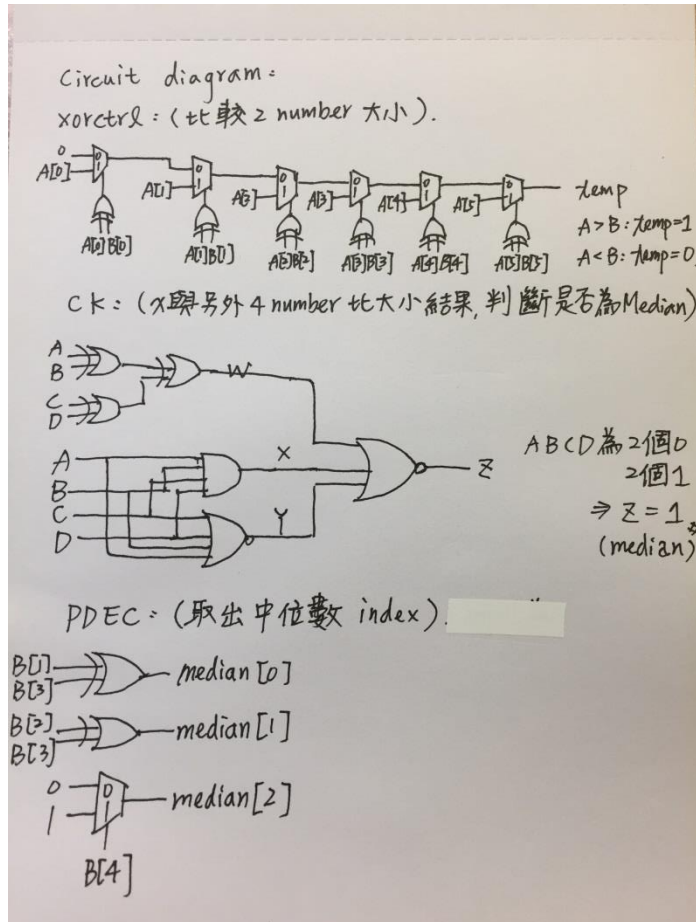 Circuit diagram:
xorctrl: (比較 2 number 大小).
0
A[0]
0
1
A[0] B[0]
A[1]
0
1
A[1] B[1]
A[2]
0
1
A[2] B[2]
A[3]
0
1
A[3] B[3]
A[4]
0
1
A[4] B[4]
A[5]
0
1
A[5] B[5]
temp
A > B: temp=1
A < B: temp=0
CK: (x與另外 4 number 比大小結果, 判斷是否為Median)
A
B
C
D
W
A
B
C
D
X
Y
Z
ABCD為2個0
2個1
⇒ Z = 1
(median)
PDEC: (取出中位數 index).
B[1]
B[3]
median [0]
B[2]
B[3]
median [1]
0
1
0
1
median [2]
B[4]